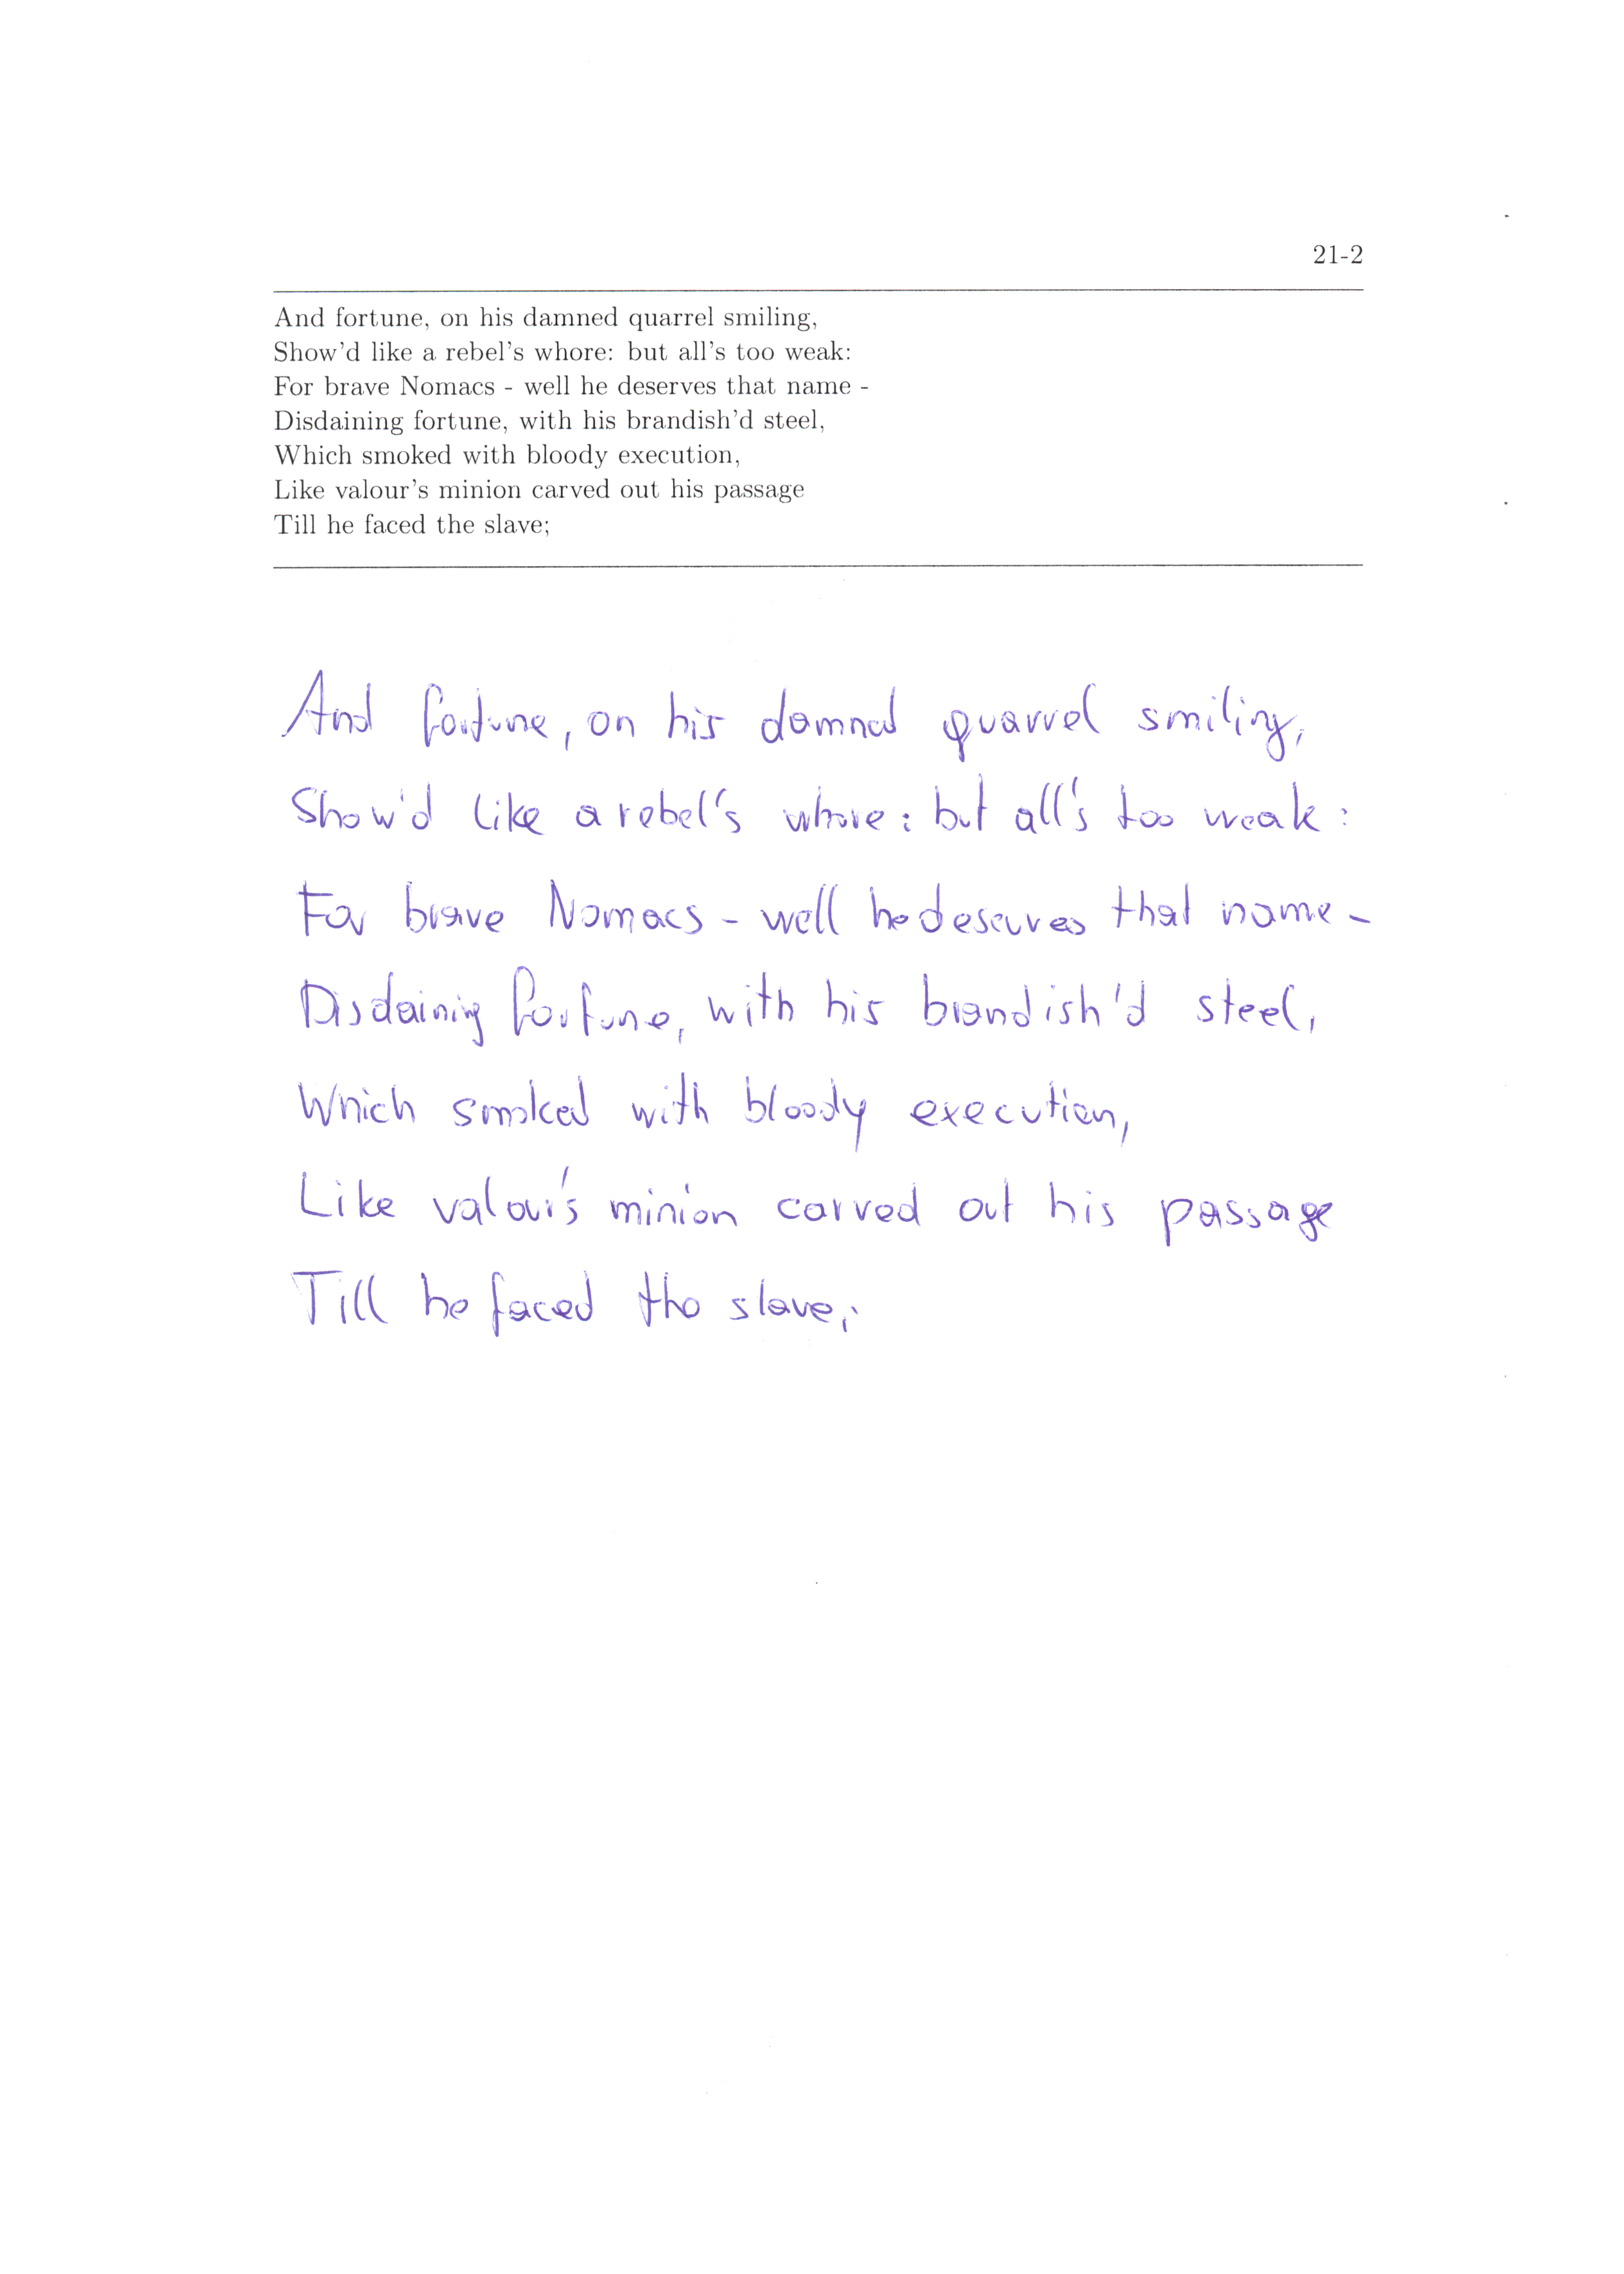 21-2
And fortune, on his damned quarrel smiling,
Show'd like a rebel's whore: but all's too weak:
For brave Nomacs - well he deserves that name -
Disdaining fortune, with his brandish'd steel,
Which smoked with bloody execution,
Like valour's minion carved out his passage
Till he faced the slave;
And fortune, on his damned quarrel smiling,
Show'd like a rebel's whore: but all's too weak:
For brave Nomacs - well he deserves that name -
Disdaining fortune, with his brandish'd steel,
Which smoked with bloody execution,
Like valour's minion carved out his passage
Till he faced the slave;